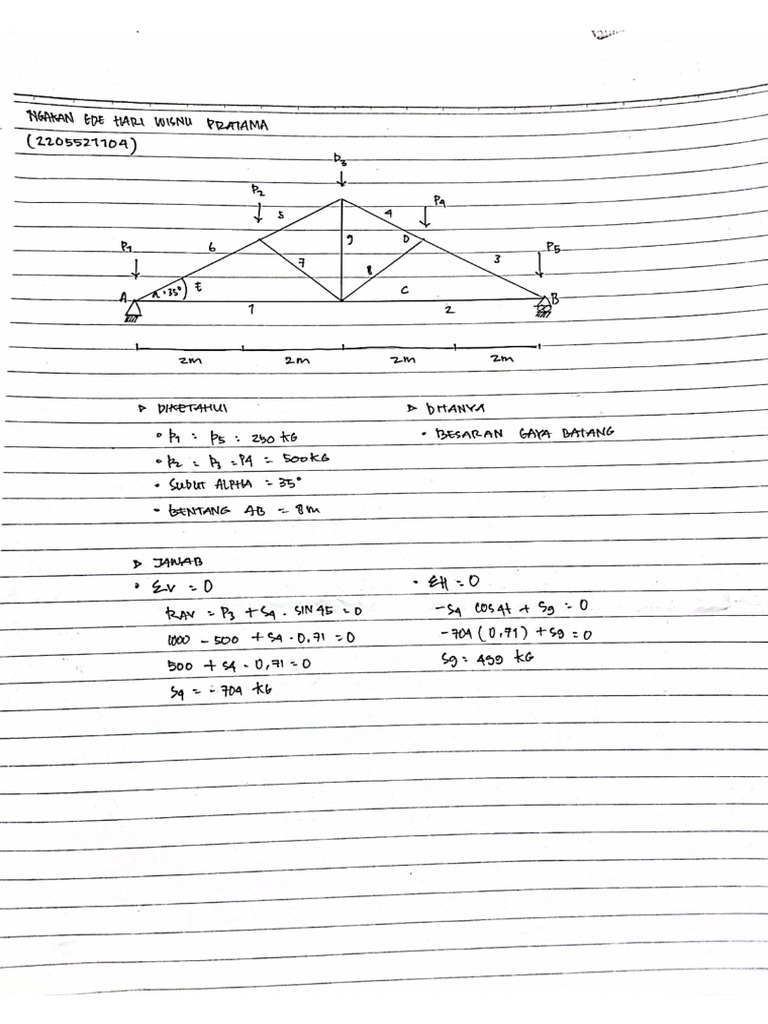 NGAKAN EDE HARI WISNU PRATAMA
(2205521104)
P3
P2
P4
5
4
P1
6
9
D
P5
7
8
3
A
α = 35°
E
C
B
1
2
2m 2m 2m 2m
▷ DIKETAHUI
• P1 = P5 = 250 KG
• P2 = P3 = P4 = 500 KG
• SUDUT ALPHA = 35°
• BENTANG AB = 8m
▷ DITANYA
• BESARAN GAYA BATANG
▷ JAWAB
• ΣV = 0
RAV = P3 + S4 . SIN 45 = 0
1000 - 500 + S4 . 0,71 = 0
500 + S4 . 0,71 = 0
S4 = - 704 KG
• ΣH = 0
-S4 COS 4t + S9 = 0
-704 (0,71) + S9 = 0
S9 = 499 KG